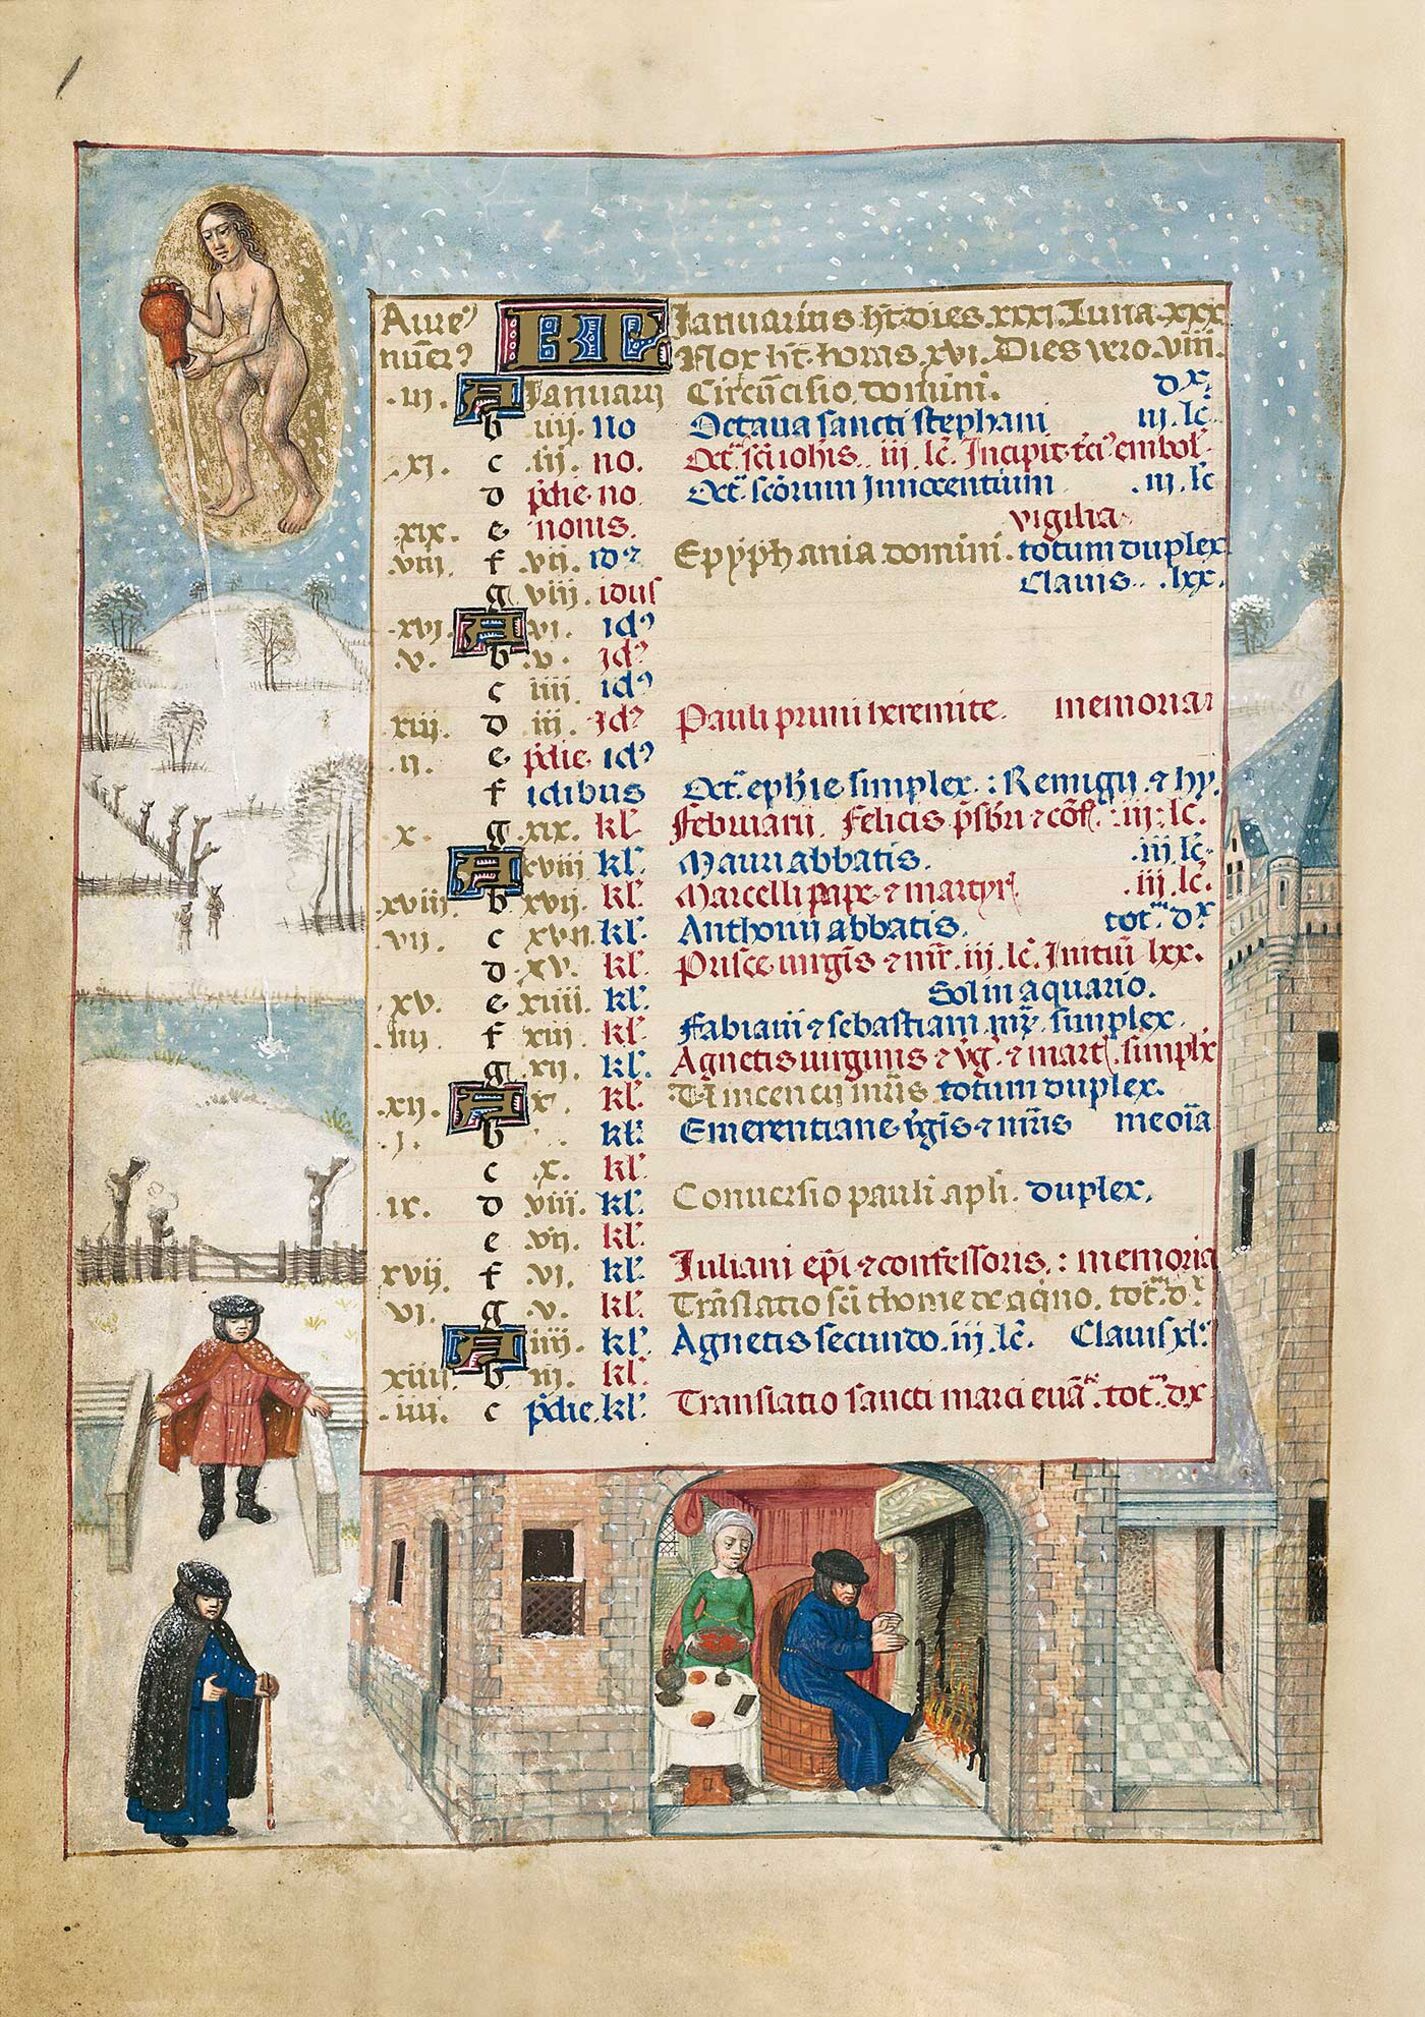 Aure⁹ KL Januarius h̄t dies .xxxi. Luna .xxx
nūer⁹ Nox h̄t horas .xvi. Dies vero .viii.
.iii. A Januarij Circūcisio domini. dx̄
b iiij. no Octava sancti stephani iij. lc̄.
.xi. c .iij. no. Oct̄. sc̄i ioh̄is. iij. lc̄. Incipit embol.
d p̄die. no. Oct̄. sc̄orum Innocentium .iij. lc̄
.xix. e nonis. vigilia
viij. f .vij. id⁹ Epyphania domini. totum duplex
g viij. idus Clavis. .lxx.
.xvi. A vi. id⁹
.v. b .v. id⁹
c iiij id⁹
xiij. d iij. id⁹ Pauli primi heremite. memoria
.ij. e p̄die id⁹
f idibus Oct̄. ep̄hie simplex. : Remigij. ⁊ hy.
.x. g .xix. kl̄. Februarij. Felicis p̄sbri ⁊ cōf. : iij : lc̄.
A xviij kl̄. Mauri abbatis. .iij. lc̄.
xviij. b xvij. kl̄. Marcelli pape ⁊ martyr .iij. lc̄.
.vij. c xvii. kl̄. Anthonij abbatis. tot̄. dx̄
d .xv. kl̄. Prisce virgīs ⁊ mr̄. iij. lc̄. Initiū lxx.
xv. e xiiij. kl̄. Sol in aquario.
.iiij f xiij kl̄. Fabiani ⁊ sebastiani. mr̄. simplex.
g .xij. kl̄. Agnetis virginis ⁊ vḡ. ⁊ mart. simplx
.xij. A x. kl̄. Vincencij mr̄is totum duplex.
.j. b kl̄. Emerentiane v̄gīs ⁊ mr̄is meōia
c .x. kl̄.
ix. d viij. kl̄. Conversio pauli apl̄i. duplex.
e .vij. kl̄.
xvij f .vi. kl̄. Iuliani ep̄i ⁊ confessoris. : memoria
vi. g .v. kl̄. Trāslatio sc̄i thome de aq̄ino. tot̄. dx̄
A iiij. kl̄. Agnetis secundo. iij. lc̄. Clavis xl.
xiiij. b iij. kl̄.
.iiij. c p̄die. kl̄. Translatio sancti marci evā. tot̄. dx̄